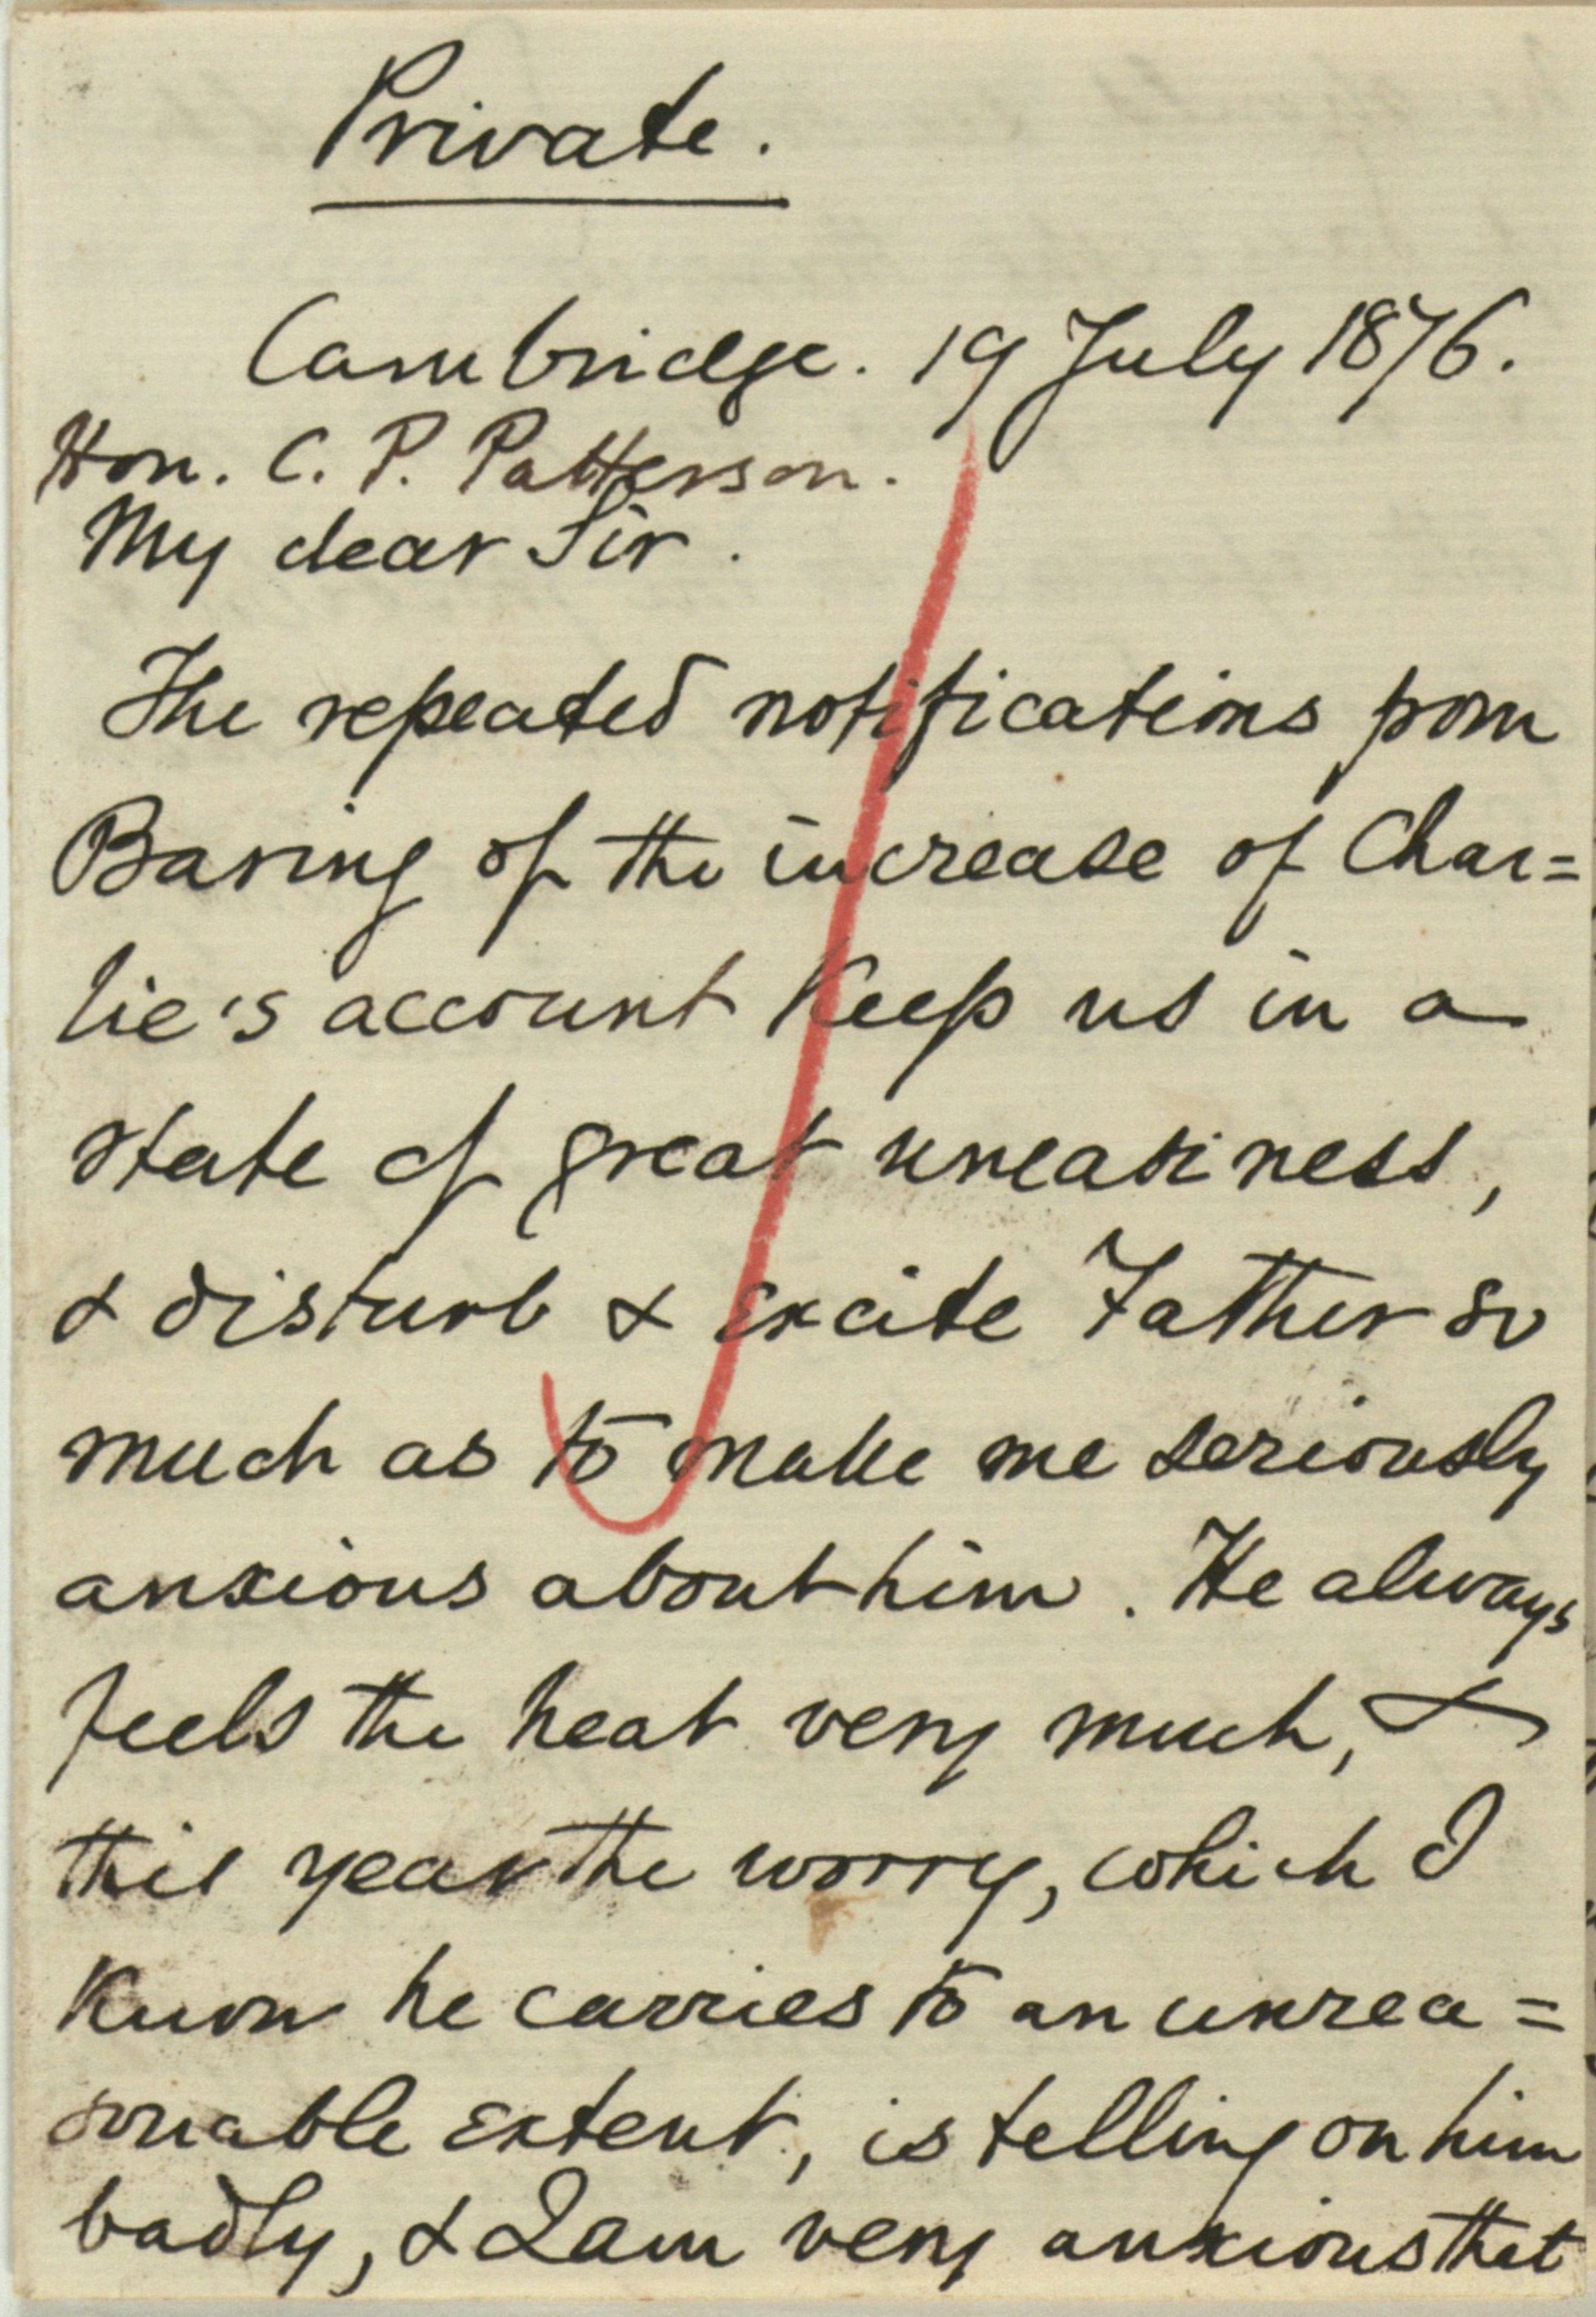 Private.
Cambridge. 19 July 1876.
Hon. C. P. Patterson.
My dear Sir.
The repeated notifications from
Baring of the increase of Char=
lie's account keep us in a
state of great uneasiness,
& disturb & excite Father so
much as to make me seriously
anxious about him. He always
feels the heat very much, &
this year the worry, which I
know he carries to an unrea=
sonable extent, is telling on him
badly, & I am very anxious that